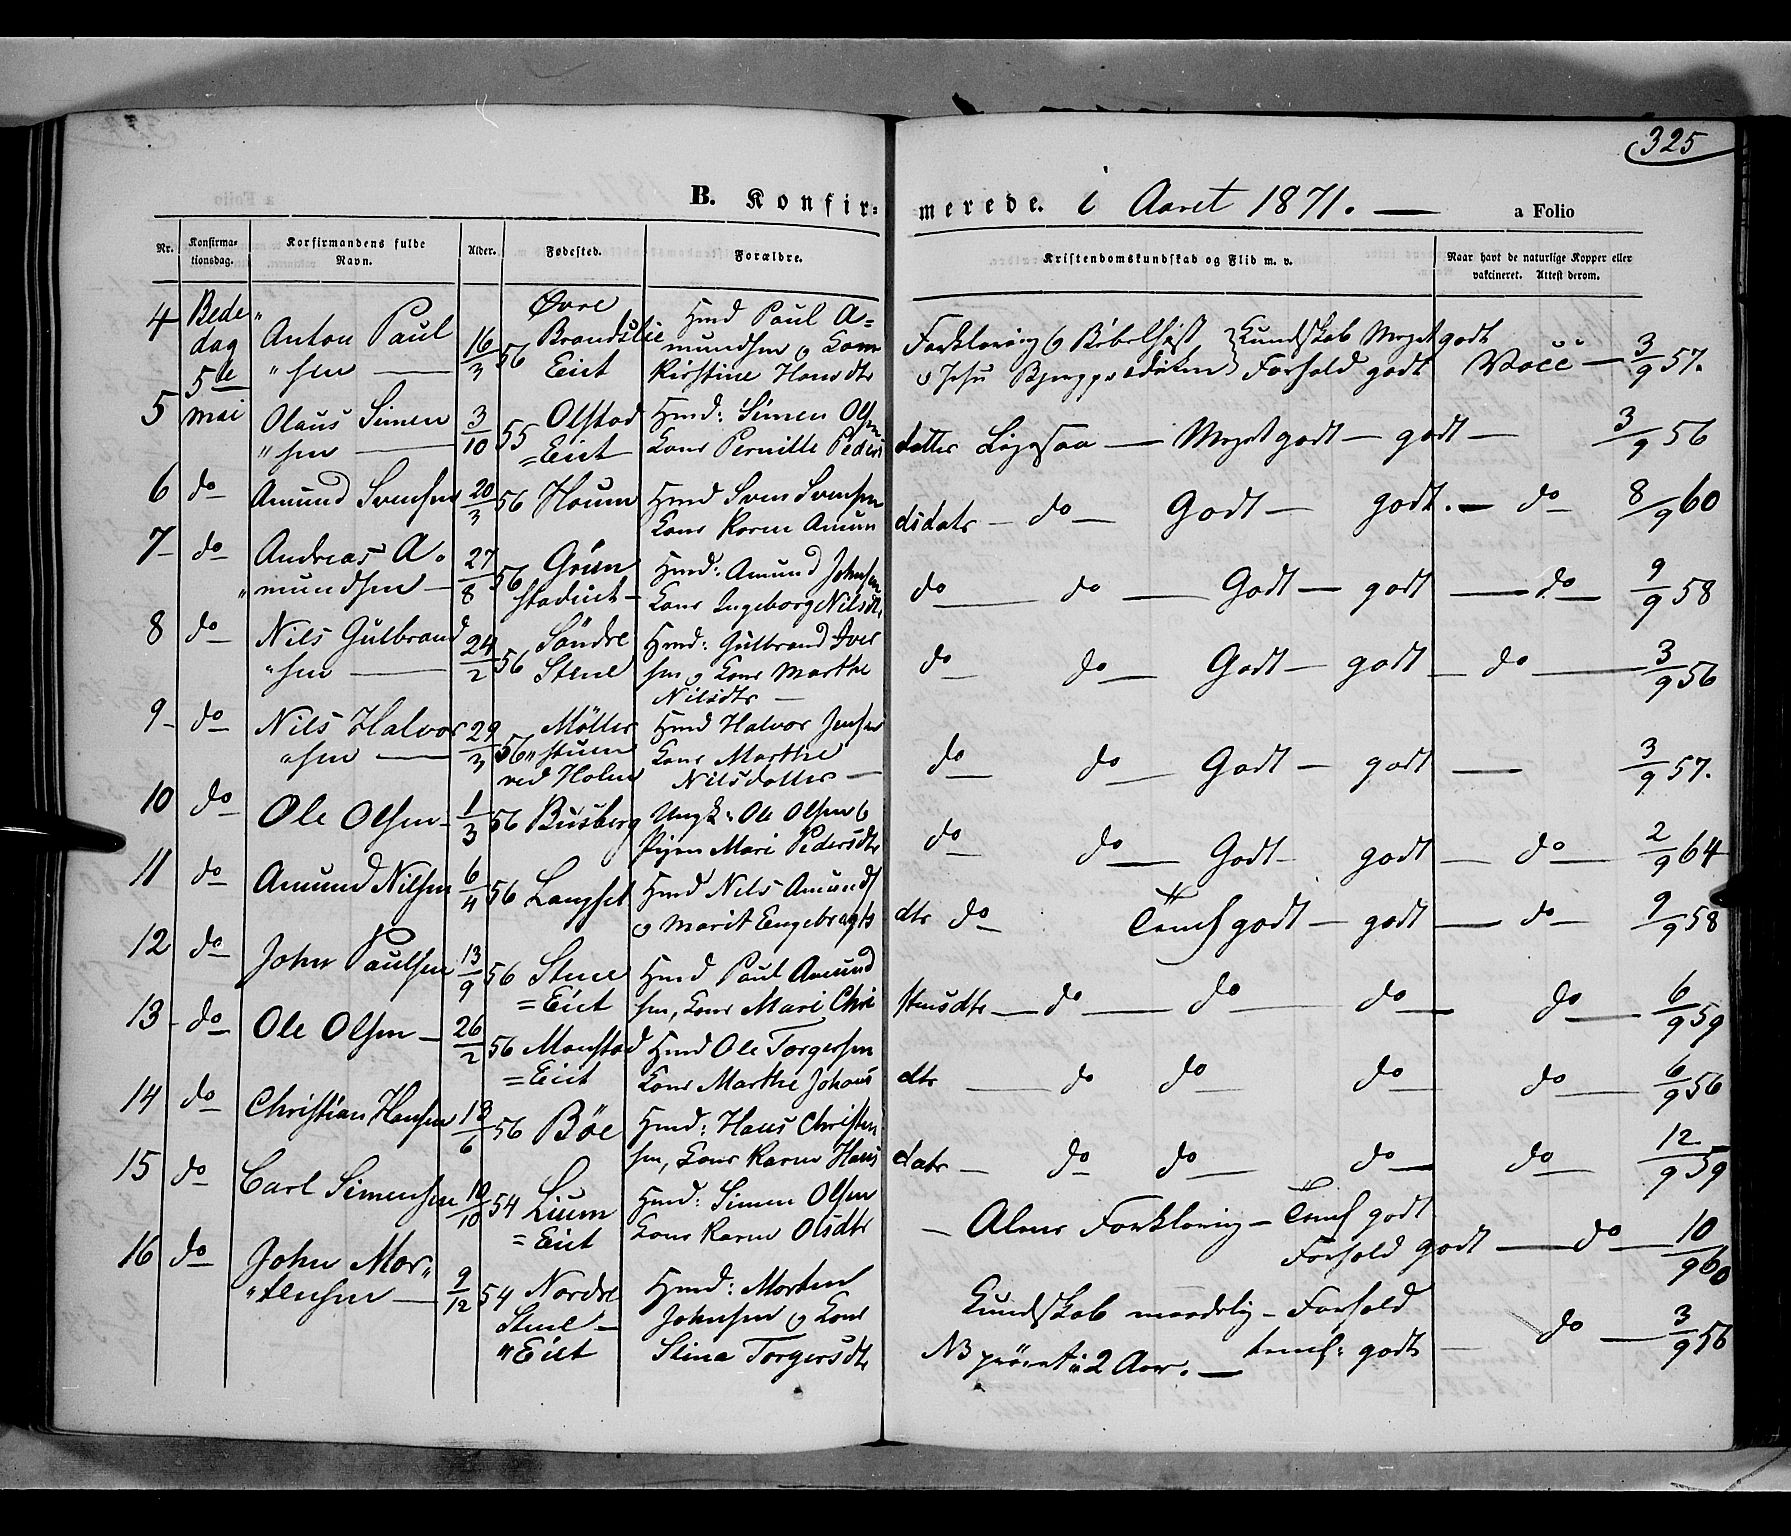 325
B. Konfir= merede. i Aaret 1871. — a Folio
Nr. Konfirma-tionsdag. Korfirmandens fulde Navn. Alder. Fødested. Forældre. Kristendomskundskab og Flid m. v. Naar havt de naturlige Kopper eller vakcineret. Attest derom.
4 Bede" Anton Paul 16/3 56 Øvre Hmd Paul A= Forklaring & Bibelhist Kundskab Meget godt
dag "sen — Brandstlie mundsen o Kone o Jesu Forhold godt Vacc — 3/9 57.
5te Eiet Kirstine Hansdtr
5 mai Olaus Simen 3/10 55 Olstad Hmd: Simen Olsen
"sen — =Eiet Kone Pernille Peders datter Ligesaa — Meget godt — godt — 3/9 56
6 do Amund Svensen 20/3 56 Houm Hmd Sven Svensen
Kone Karen Amun dsdatr — do — Godt — godt. — do 8/9 60
7 do Andreas A. 27/8 56 Grün Hmd: Amund Johnsen
"mundsen — stadeiet — Kone Ingeborg Nilsdtr do — do — Godt — godt — do — 9/9 58
8 do Nils Gulbrand 24/2 56 Söndre Hmd: Gulbrand Iver
"sen — Stene sen o Kone Marthe do do — Godt — godt — do — 3/9 56
Nilsdtr —
9 do Nils Halvor 29/3 56 Möller Hmd Halvor Jensen
"sen — "stuen Kone Marthe do do — Godt — godt — 3/9 57.
ved Holen Nilsdatter —
10 do Ole Olsen — 1/3 56 Busberg Ungk: Ole Olsen &
Pigen Mari Pedersdtr do do — Godt — godt — do — 2/9 64
11 do Amund Nilsen 6/4 56 Langset Hmd Nils Amunds
o Marit Engebregts dtr do Temf godt — godt — do — 9/9 58
12 do John Paulsen 13/9 56 Stene Hmd Paul Amund
=Eiet sen, Kone Mari Chri stensdtr — do — do — do — do — 6/9 59
13 do Ole Olsen — 26/2 56 Monstad Hmd Ole Torgersen
=Eiet Kone Marthe Johans dtr — do do — do — do — 6/9 56
14 do Christian Hansen 13/6 56 Böe Hmd: Hans Christen
sen, Kone Karen Hans datr — do do — do — do — 12/9 59
15 do Carl Simensen 10/10 54 Lium Hmd: Simen Olsen
=Eiet Kone Karen Olsdtr — Alene Forklaring — Temf godt
Forhold godt — do — 10/9 60
16 do John Mor" 9/12 54 Nordre Hmd: Morten
"tensen — Stene — Johnsen o Kone Kundskab maadelig — Forhold
"Eiet Stina Torgersdtr NB prövet i 2 Aar. — temf: godt — do — 3/9 56